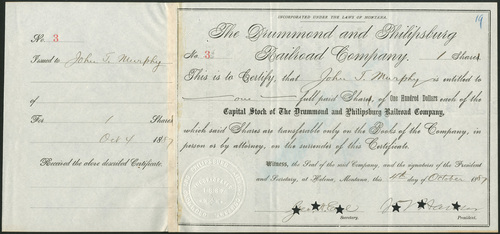 No. 3
Issued to John T. Murphy
of
For 1 Shares
Oct 4 1887
Received the above described Certificate.
INCORPORATED UNDER THE LAWS OF MONTANA.
19
The Drummond and Philipsburg
Railroad Company.
No. 3
1 Shares
This is to Certify, that John T. Murphy is entitled to
one full paid Shares, of One Hundred Dollars each of the
Capital Stock of The Drummond and Philipsburg Railroad Company,
which said Shares are transferable only on the Books of the Company, in
person or by attorney, on the surrender of this Certificate.
Witness, the Seal of the said Company, and the signatures of the President
and Secretary, at Helena, Montana, this 4th day of October 1887
Secretary.
President.